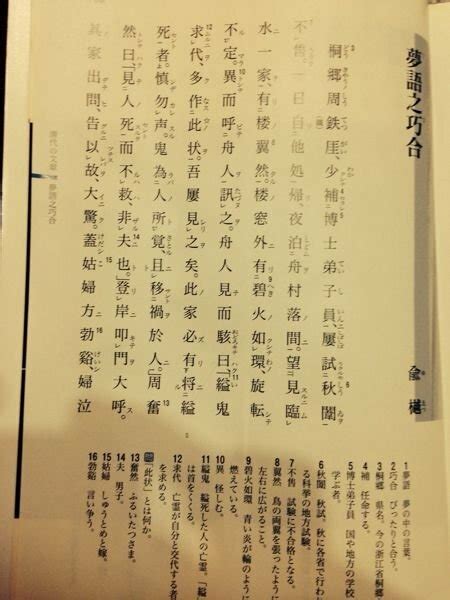 夢語之巧合
兪樾
桐郷周鉄厓、少補博士弟子員、屢試秋闈
不售。一日自他処帰、夜泊舟村落間。望見臨
水一家、有楼翼然。楼窓外有碧火如環、旋転
不定。異而呼舟人訊之。舟人見而駭曰、「縊鬼
求代、多作此状。吾屢見之矣。此家必有将縊
死者。慎勿声。鬼為人所覚、且移禍於人。」周奮
然曰、「見人死而不救、非夫也。」登岸叩門大呼。
其家出問、告以故。大驚。蓋姑婦方勃谿、婦泣
1 夢語 夢の中の言葉。
2 巧合 ぴったりと合う。
3 桐郷 県名。今の浙江省桐郷
4 補 任命する。
5 博士弟子員 国や地方の学校
学ぶ者。
6 秋闈 秋試。秋に各省で行わ
る科挙の地方試験。
7 不售 試験に不合格となる。
8 翼然 鳥の両翼を張ったように
左右に広がること。
9 碧火如環 青い炎が輪のように
燃えている。
10 異 怪しむ。
11 縊鬼 縊死した人の亡霊。「縊
は首をくくる。
12 求代 亡霊が自分と交代する者
を求める。
問 「此状」とは何か。
13 奮然 ふるいたつさま。
14 夫 男子。
15 姑婦 しゅうとめと嫁。
16 勃谿 言い争う。
清代の文章 夢語之巧合